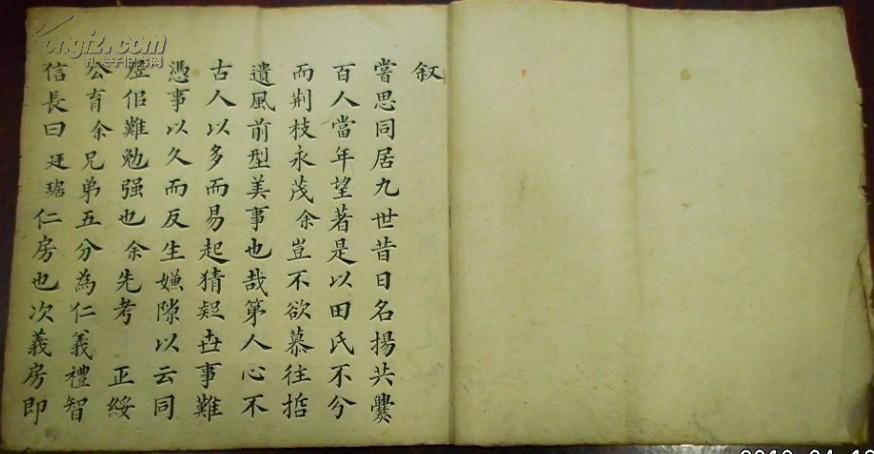 叙
嘗思同居九世昔日名揚共爨
百人當年望著是以田氏不分
而荆枝永茂余豈不欲慕往哲
遺風前型美事也哉第人心不
古人以多而易起猜疑世事難
憑事以久而反生嫌隙以云同
居但難勉强也余先考 正綏
公育余兄弟五分為仁義禮智
信長曰廷琚仁房也次義房即
kongfz.com
孔夫子旧书网